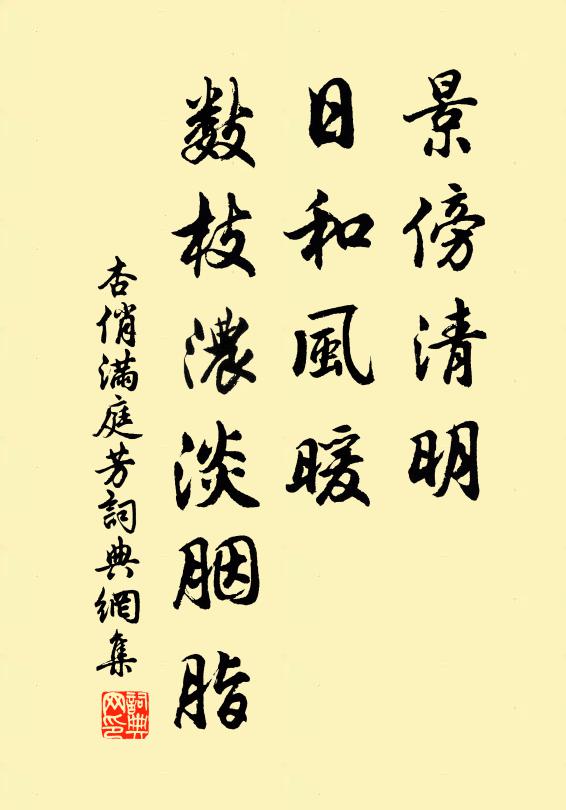 景傍清明
日和風暖
數枝濃淡胭脂
杏俏滿庭芳詞典網集
詞典
网印